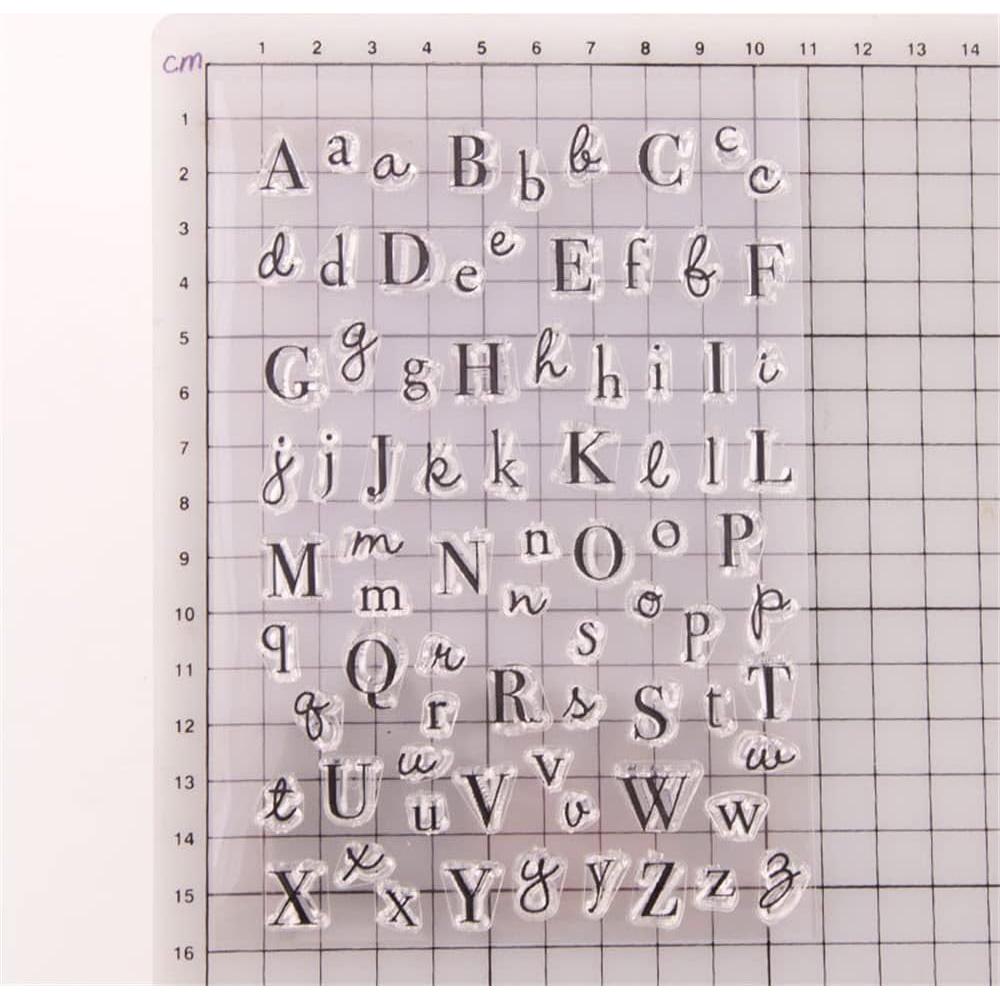 1 2 3 4 5 6 7 8 9 10 11 12 13 14
cm
1
A a a B b b C c c
2
3
d d D e e E f f F
4
5
G g g H h h i I i
6
7
j j J k k K l l L
8
M m N n O o P
9
m n o p p
10
q Q r s
11
q r R s S t T
12
u v w
13
t U u V v W w
14
x
X x Y y y Z z z
15
16